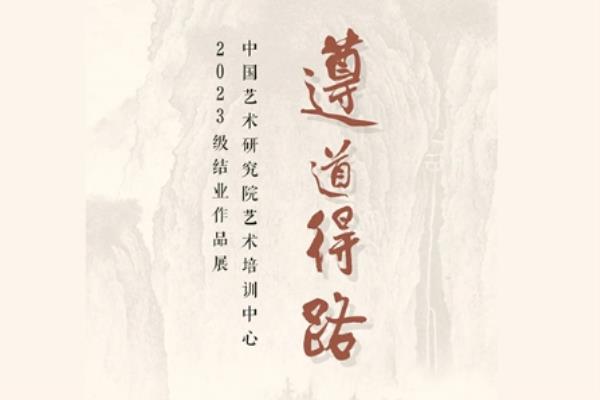 遵道得路
中国艺术研究院艺术培训中心
2023级结业作品展